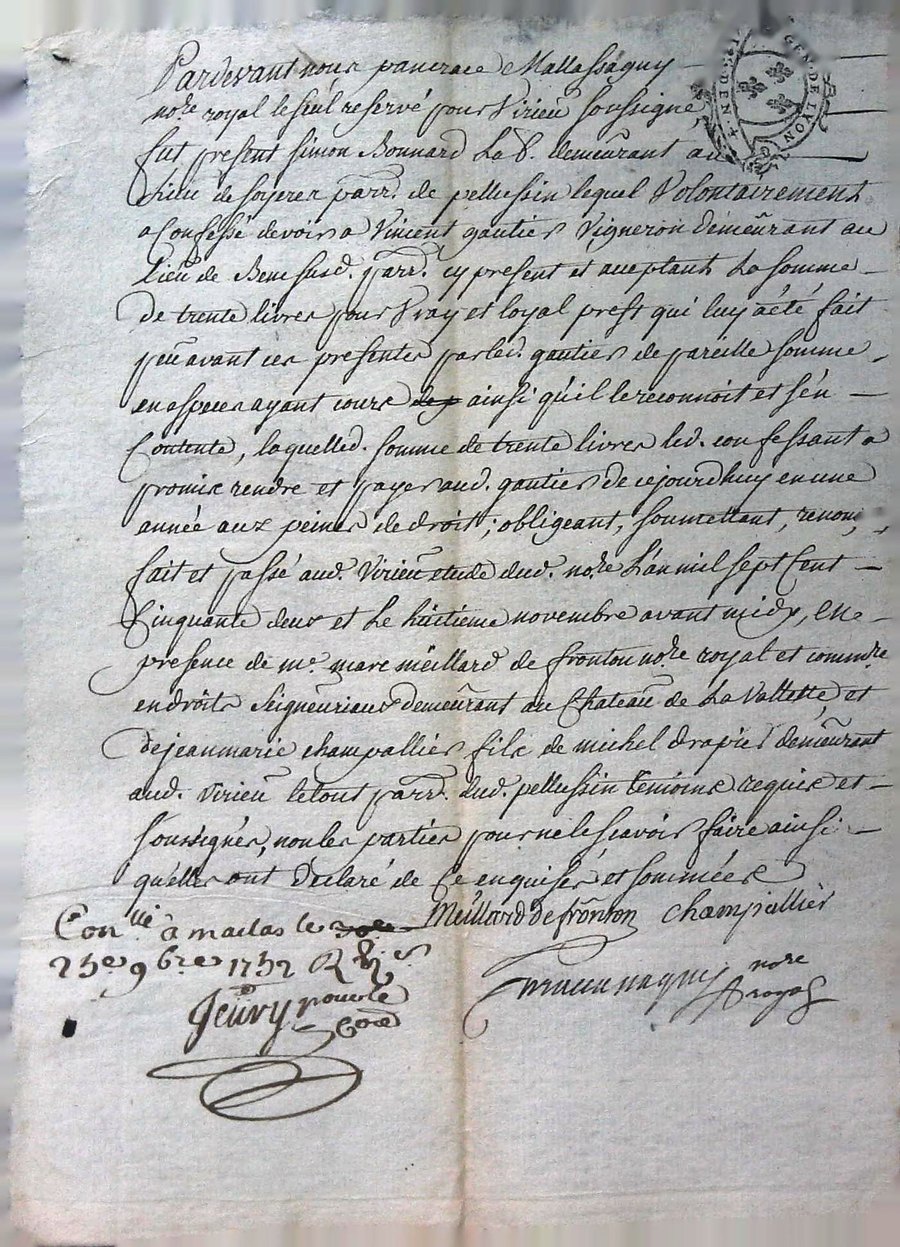 Pardevant nous pancrace Mallassagny
nore royal le seul reservé pour Virieu soussigné
fut present Simon Bonnard La b. demeurant au
Lieu de soyeres parr. de pellussin lequel Volontairement
a Confessé devoir a Vincent gautier Vigneron demeurant au
Lieu de Bene susd. parr. cy present et acceptant La somme
De trente livres pour Vray et loyal prest qui luy a été fait
peu avant ces presentes par led. gautier de pareille somme
en especes ayant cours ainsi qu'il le reconnoit et s'en
Contente, laquelled. somme de trente livres led. confessant a
promis rendre et payer aud. gautier de cejourdhuy en une
année aux peines de droit; obligeant, soumettant, renonç
fait et passé aud. Virieu etude dud. nore L'an mil sept Cent
Cinquante deux et Le huitieme novembre avant midy, en
presence de me. marc meillard de fronton nore royal et commre
en droits Seigneuriaux demeurant au Chateau de La Vallette, et
de jeanmarie champallier fils de michel drapier demeurant
aud. Virieu le tout parr. dud. pellussin temoins requis et
soussignés, non les parties pour ne le scavoir faire ainsi
qu'elles ont déclaré de ce enquises et sommées
Meillard de fronton champallier
Conlé à maclas le
23e 9bre 1752 R
nore
royal
Jeury pour le